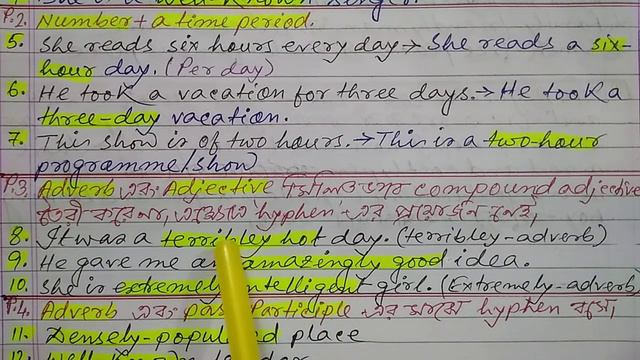 P.2. Number + a time period.
5. She reads six hours every day → She reads a six-
hour day. (Per day)
6. He took a vacation for three days. → He took a
three-day vacation.
7. This show is of two hours. → This is a two-hour
programme/show
P.3. Adverb এবং Adjective compound adjective
'hyphen' এর প্রয়োজন নেই,
8. It was a terribley hot day. (terribley-adverb)
9. He gave me an amazingly good idea.
10. She is extremely intelligent girl. (Extremely-adverb
P.4. Adverb এবং past Participle এর মধ্যে hyphen বসে,
11. Densely-populated place